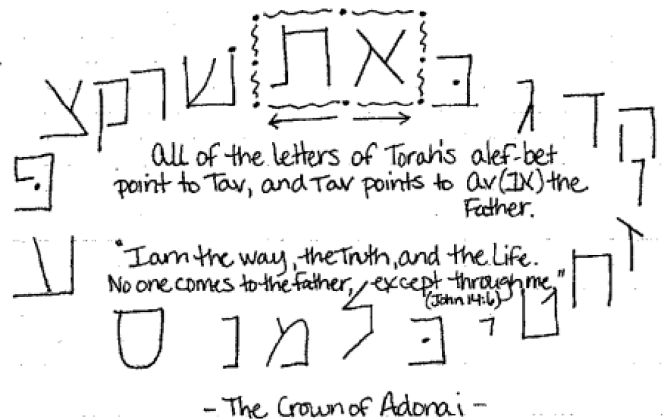 ה ד ג בּ א ת שׁ ר ק צ
All of the letters of Torah's alef-bet
point to Tav, and Tav points to av (IX) the
Father.
ו
פּ
"I am the way, the Truth, and the Life.
No one comes to the father, except through me."
(John 14:6)
ז
ח
ע
ט י כּ ל מ נ ס
- The Crown of Adonai -